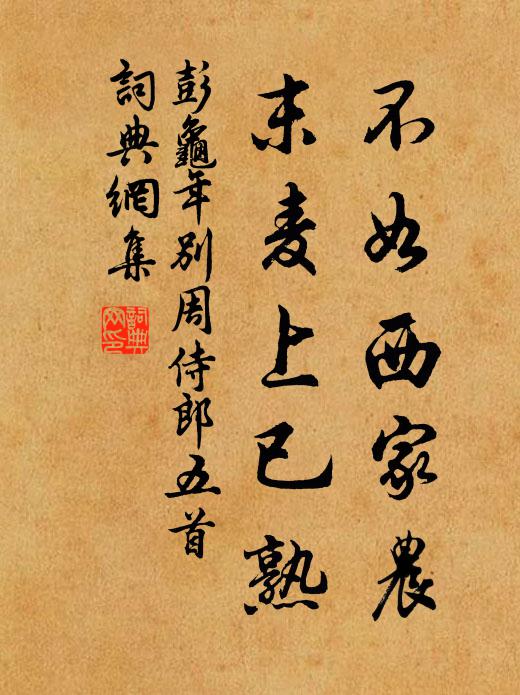 不如西家農
未麦上已熟
彭龜年別周侍郎五首
詞典網集
詞典网印